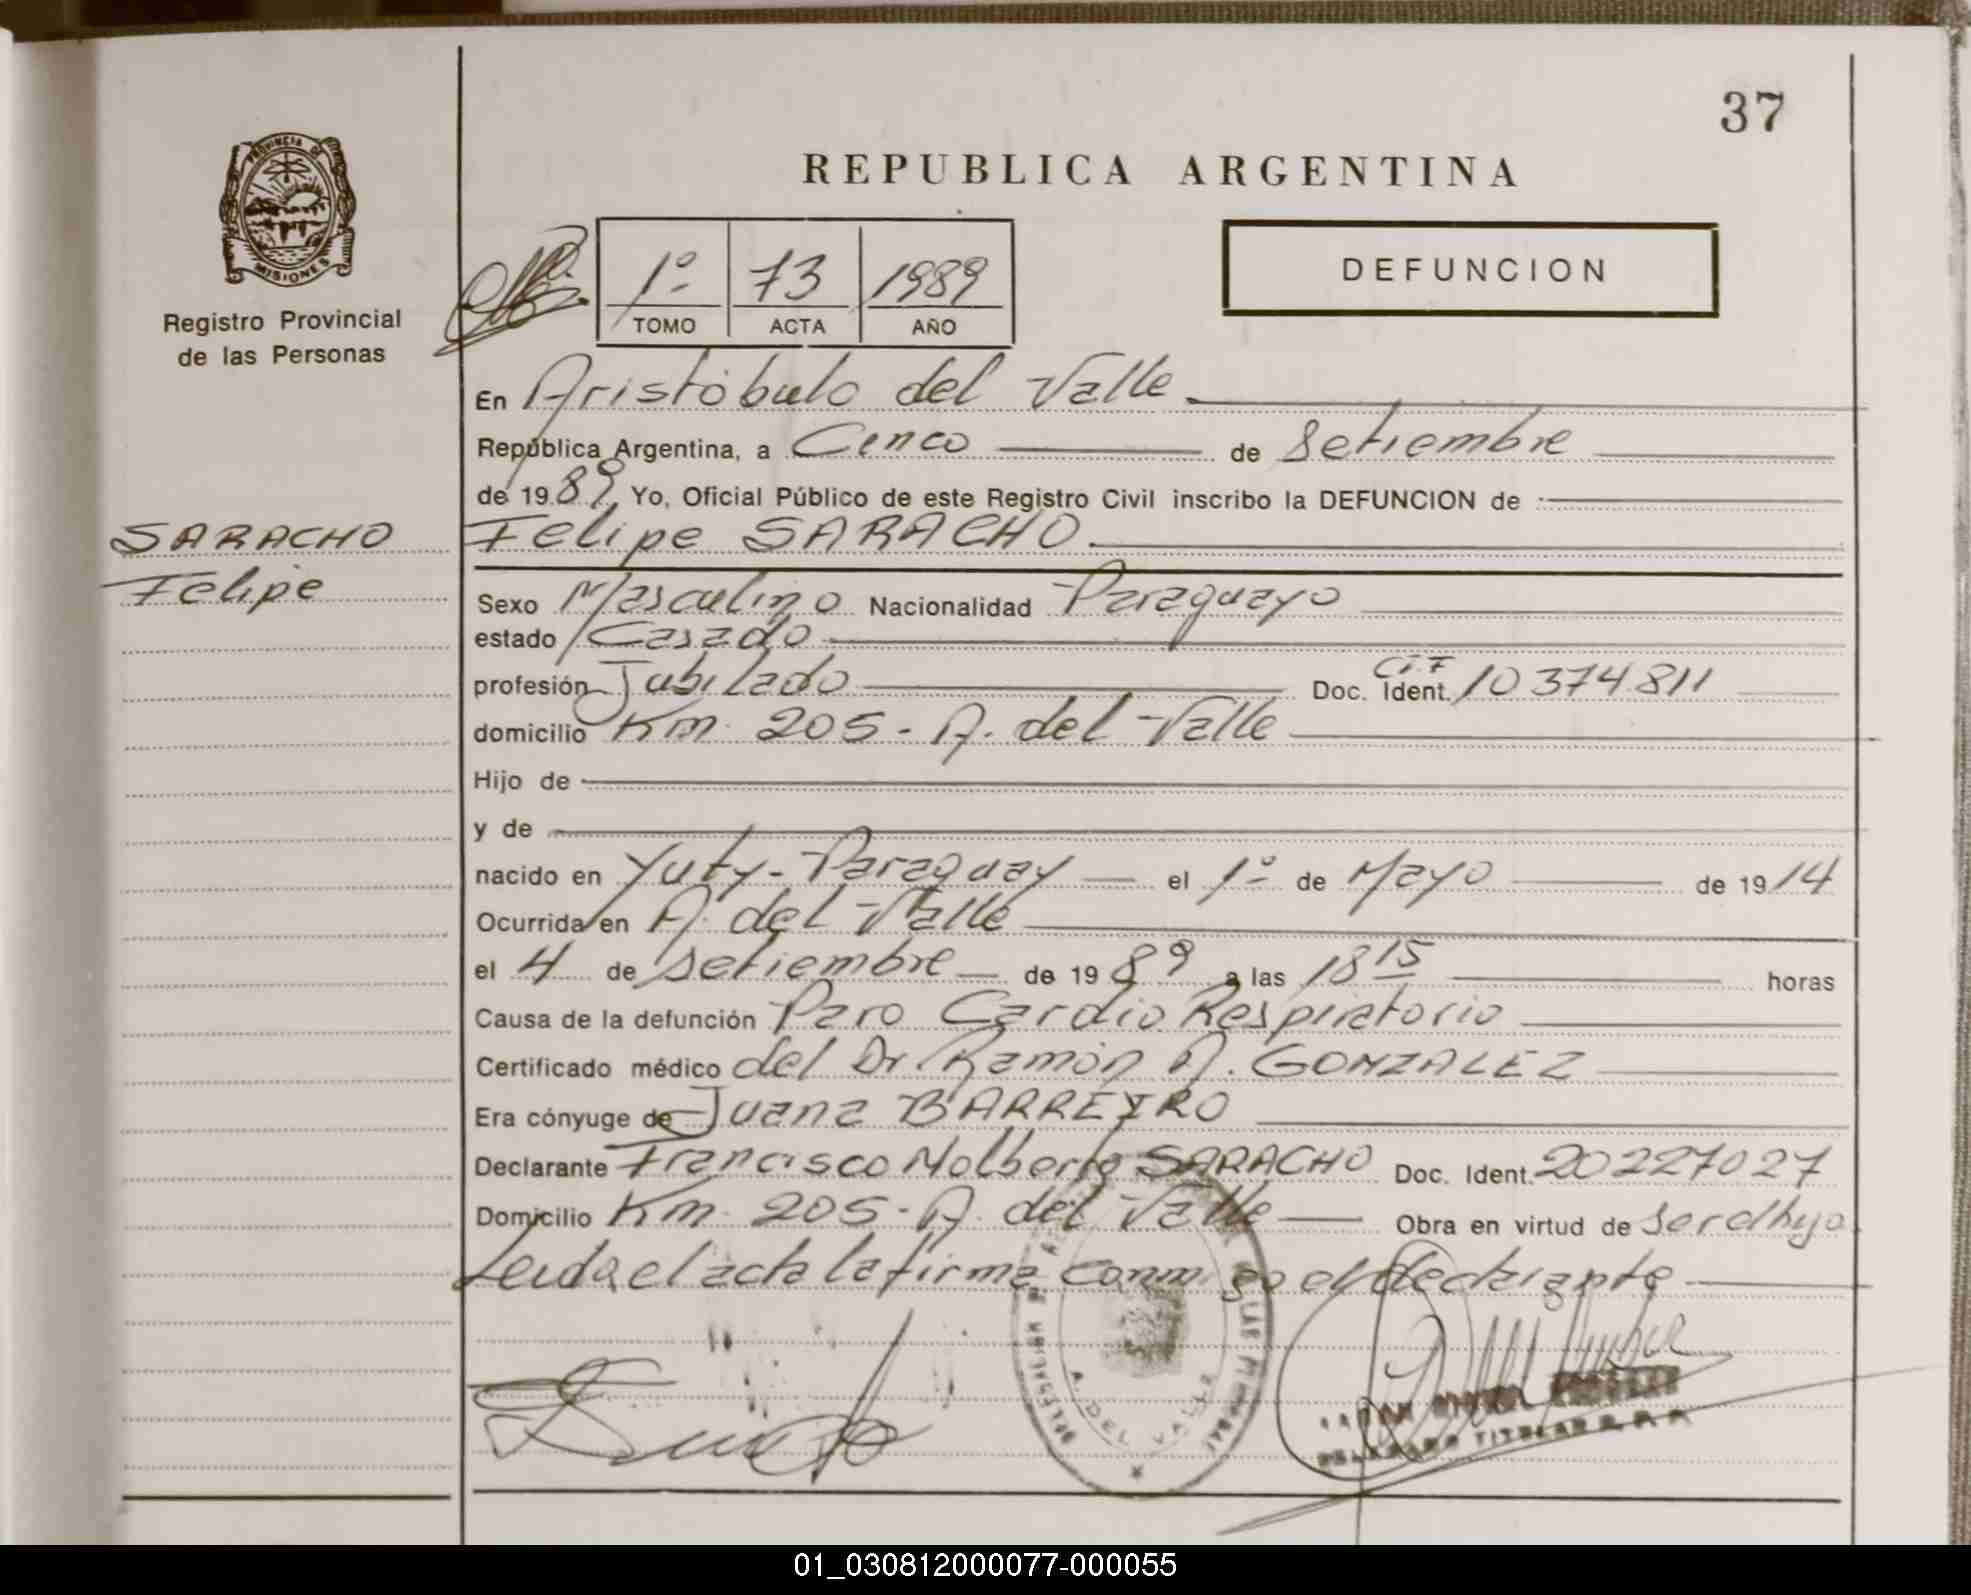 37
PROVINCIA DE
MISIONES
Registro Provincial
de las Personas
REPUBLICA ARGENTINA
1º 73 1989
TOMO ACTA AÑO
DEFUNCION
En Aristóbulo del Valle.
República Argentina, a Cinco de Setiembre
de 1989, Yo, Oficial Público de este Registro Civil inscribo la DEFUNCION de :
SARACHO
Felipe
Felipe SARACHO.
Sexo Masculino Nacionalidad Paraguayo
estado Casado
profesión Jubilado Doc. Ident. C.I.F 10374811
domicilio Km. 205 - A. del Valle
Hijo de
y de
nacido en Yuty - Paraguay el 1º de Mayo de 1914
Ocurrida en A. del Valle
el 4 de Setiembre de 1989 a las 18 15 horas
Causa de la defunción Paro Cardio Respiratorio
Certificado médico del Dr. Ramón A. GONZALEZ
Era cónyuge de Juana BARREIRO
Declarante Francisco Nolberto SARACHO Doc. Ident. 20227027
Domicilio Km. 205 - A. del Valle Obra en virtud de ser el hijo
Leida el acta la firma conmigo el declarante
A. DEL VALLE
TITULAR
01_030812000077-000055